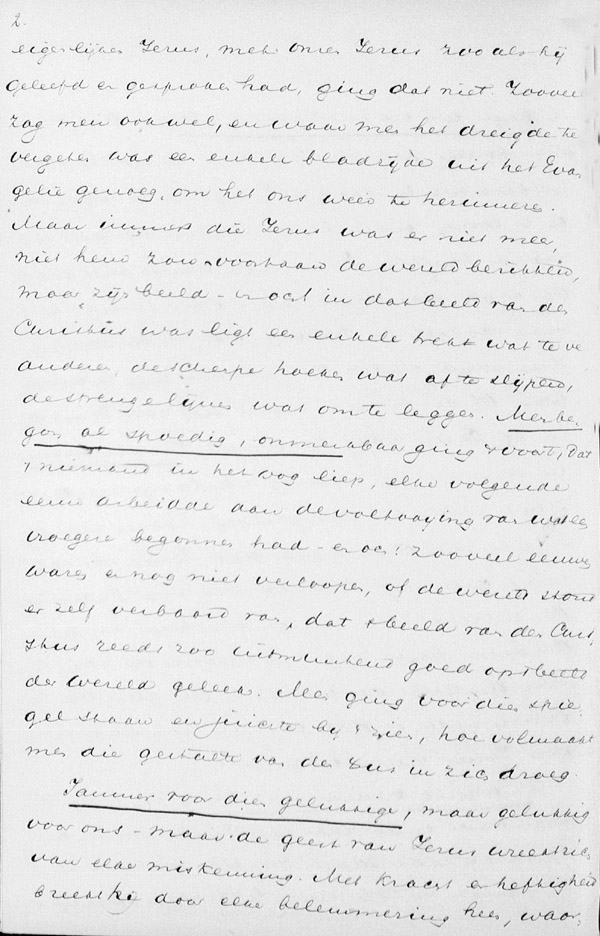 2.
eigenlijken Jezus, met onzen Jezus zooals hij
geleefd en gesproken had, ging dat niet. Zooveel
zag men ook wel, en waar men het dreigde te
vergeten was een enkele bladzijde uit het Evan
gelie genoeg, om het ons weer te herinneren.
Maar immers die Jezus was er niet meer,
niet hem zou voortaan de wereld bezitten,
maar zijn beeld - en och in dat beeld van den
Christus was ligt een enkele trek wat te ver
anderen, de scherpe hoeken wat af te slijpen,
de strenge lijnen was om te leggen. Men be-
gon al spoedig, onmerkbaar ging 't voort, dat
't niemand in het oog liep, elke volgende
eeuw arbeidde aan de voltooying van wat een
vroegere begonnen had - en och! zooveel eeuwen
waren er nog niet verloopen, of de wereld stond
er zelf verbaasd van, dat 't beeld van den Chris
tus reeds zoo uitmuntend goed op 't beeld
der wereld geleek. Men ging voor dien spie
gel staan en juichte bij 't zien, hoe volmaakt
men die gestalte van den in zich droeg.
Jammer voor dien gelukkige, maar gelukkig
voor ons - maar de geest van Jezus wreekt zich
van elke miskenning. Met kracht en heftigheid
breekt hij door elke belemmering heen, waar-